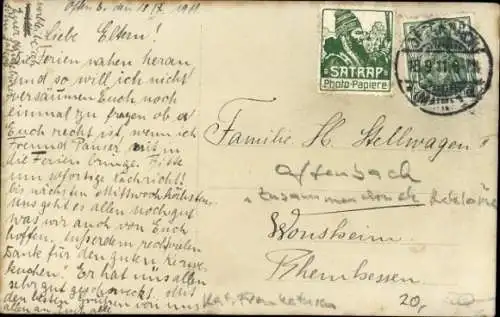 Offenb. den 18 IX 1911
Liebe Eltern!
Die Ferien nahen heran
und so will ich nicht
versäumen Euch noch
einmal zu fragen ob es
Euch recht ist, wenn ich
Freund mit in
die Ferien bringe. Bitte
um sofortige Nachricht!
bis nächsten Mittwoch höchstens
Uns geht es allen noch gut
was wir auch von Euch
hoffen. Ausserdem recht vielen
Dank für den guten
kuchen. Er hat uns allen
sehr gut geschmeckt. Mit
den besten Grüßen von uns
allen an Euch alle
SATRAP
Photo-Papiere
18.9.11
Familie H. Stellwagen
Offenbach
Zusammendruck Reklame
Wonsheim
Rheinhessen
20,-